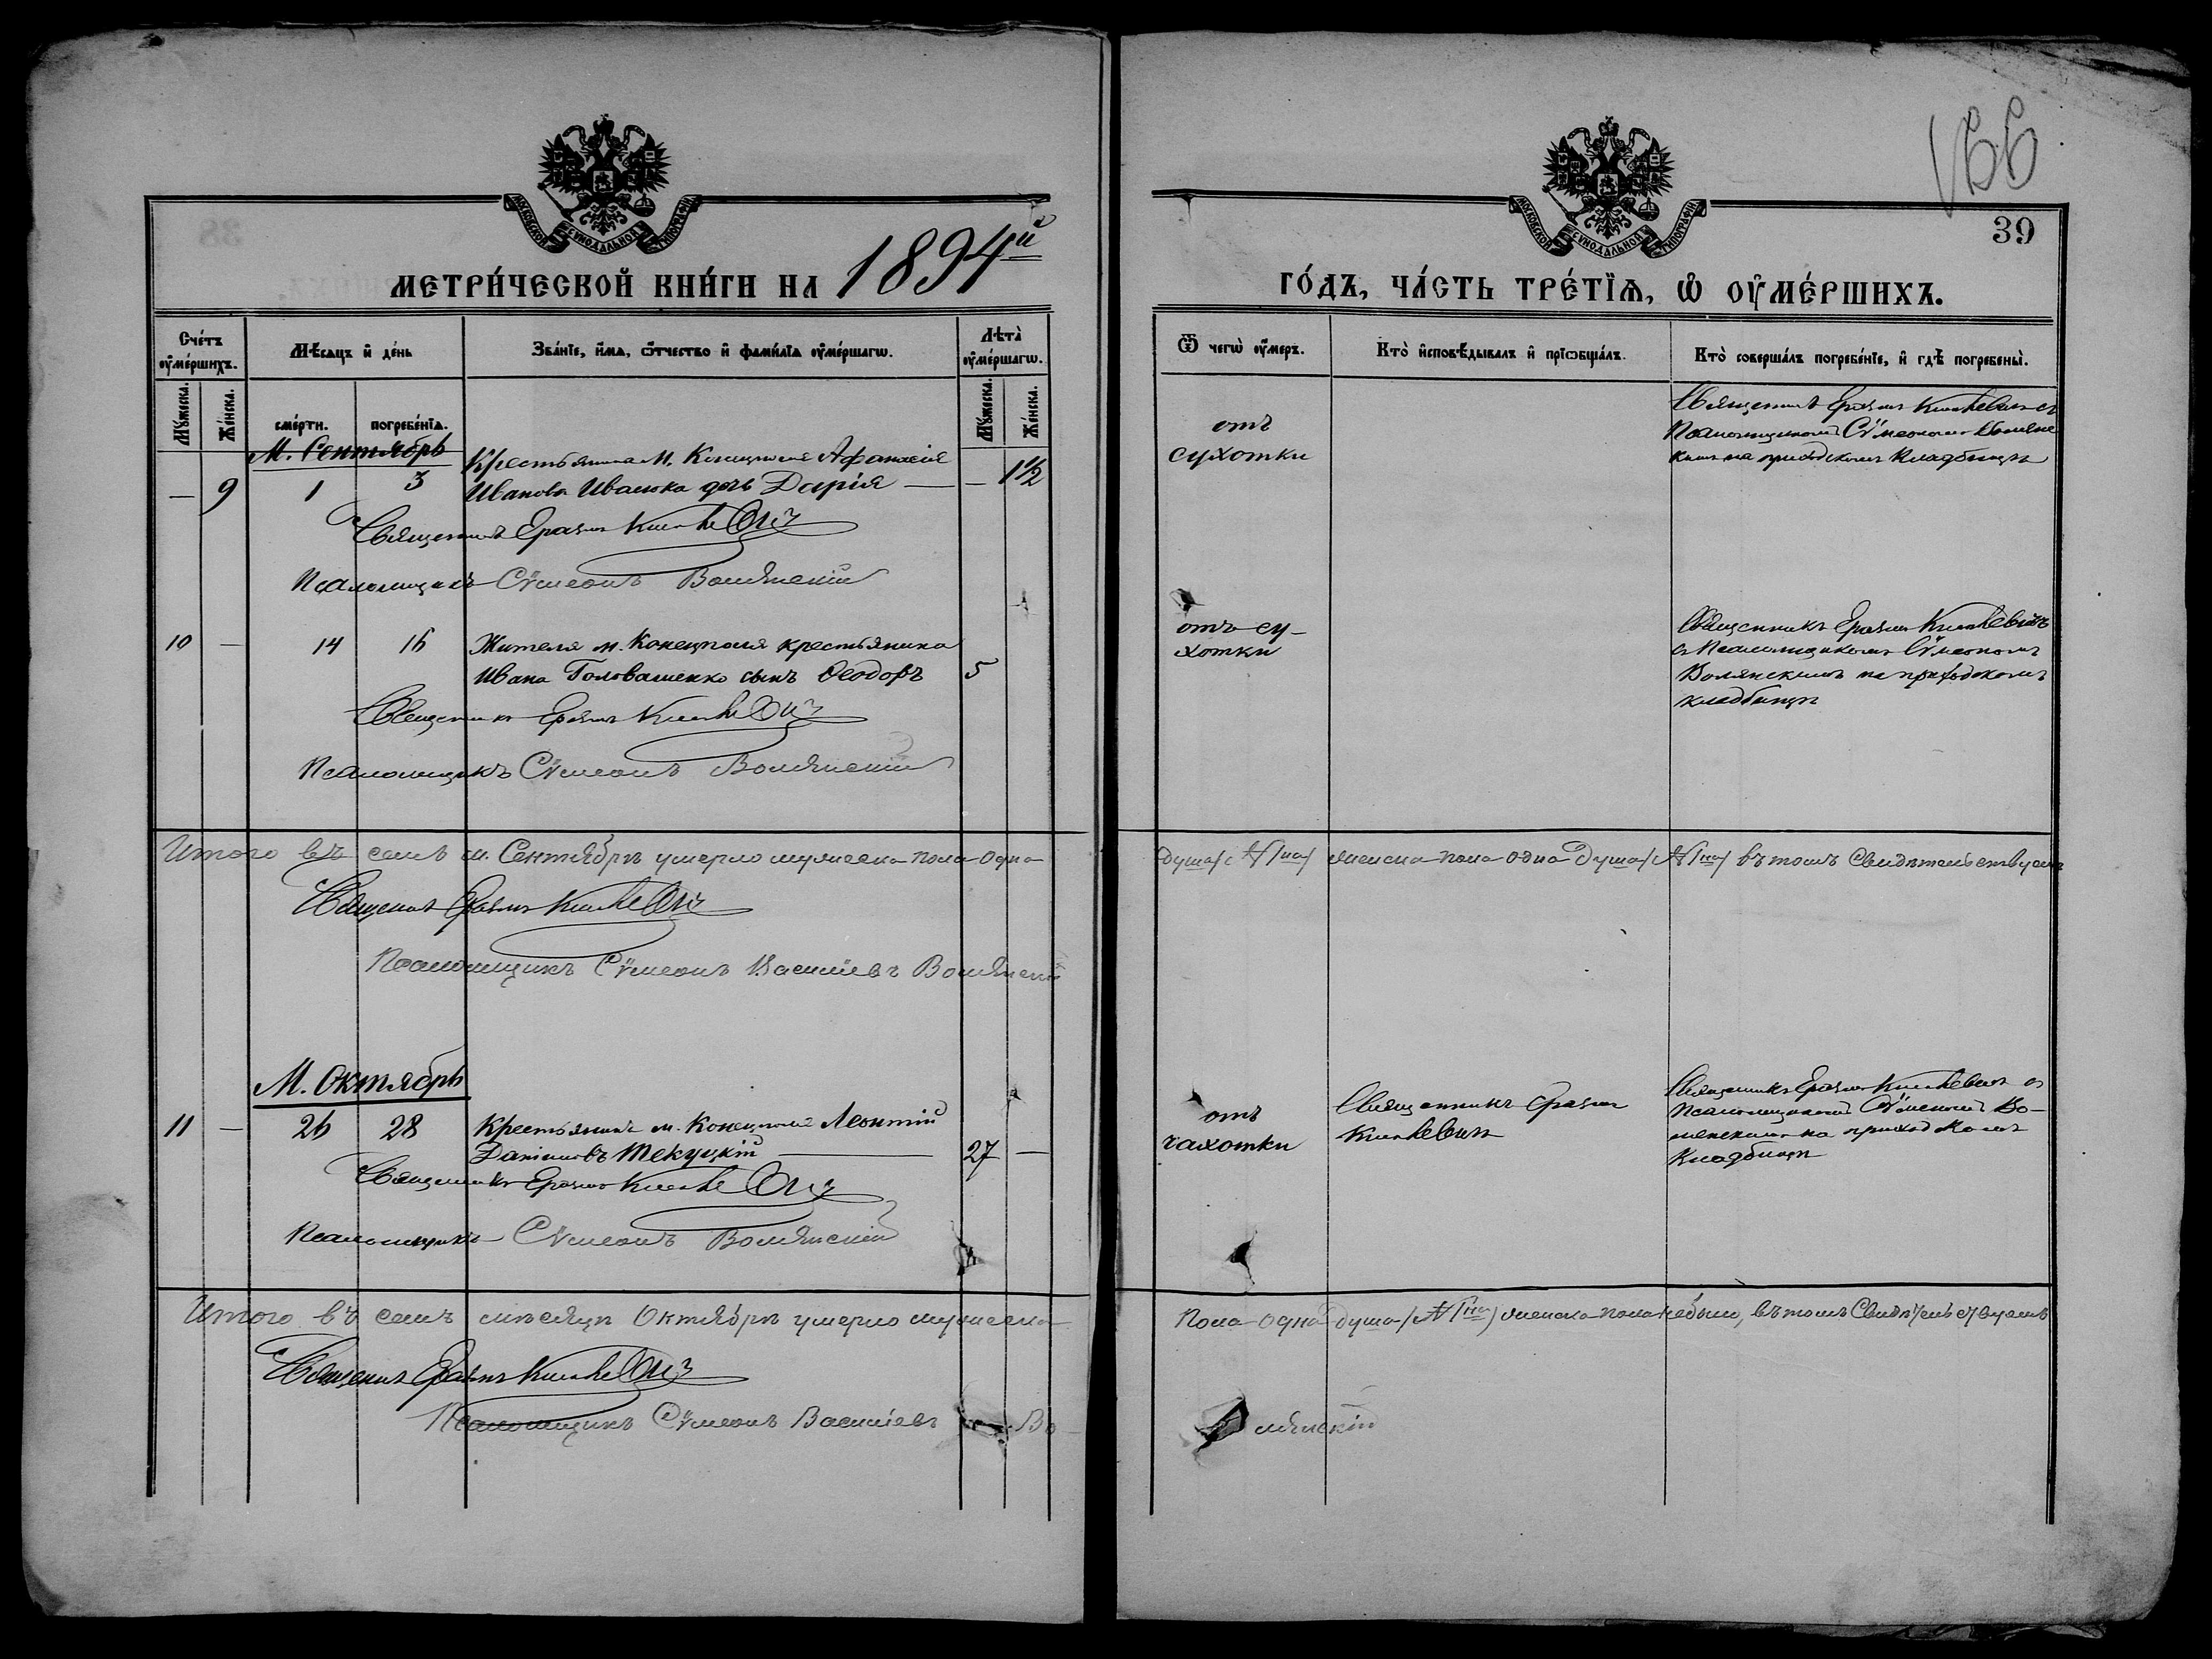 166
39
МОСКОВСКОЙ СѴНОДАЛЬНОЙ ТИПОГРАФІИ
МЕТРИ́ЧЕСКОЙ КНИ́ГИ НА 1894й
Сче́тъ оу҆ме́ршихъ.
Мѣ́сяцъ и҆ де́нь
Зва́нїе, и҆́мѧ, ѻ҆́тчество и҆ фами́лїѧ оу҆ме́ршагѡ.
Лѣта̀ оу҆ме́ршагѡ.
Мꙋ́жеска.
Же́нска.
сме́рти.
погребе́нїѧ.
Мꙋ́жеска.
Же́нска.
М. Сентябрь
— 9 1 3 Крестьянина м. Конецполя Афанасія
Иванова Ивасюка дочь Дарія — — 1½
Священникъ Еразмъ
Псаломщикъ Сѵмеонъ Волянскій
10 — 14 16 Жителя м. Конецполя крестьянина
Ивана Головашенко сынъ Ѳеодоръ 5
Священникъ Еразмъ
Псаломщикъ Сѵмеонъ Волянскій
Итого въ семъ м. Сентябрѣ умерло мужеска пола одна
Священникъ Еразмъ
Псаломщикъ Сѵмеонъ Васильевъ Волянскій
М. Октябрь
11 — 26 28 Крестьянинъ м. Конецполя Леонтій
Даніиловъ Текуцкій — 27 —
Священникъ Еразмъ
Псаломщикъ Сѵмеонъ Волянскій
Итого въ семъ мѣсяцѣ Октябрѣ умерло мужеска
Священникъ Еразмъ
Псаломщикъ Сѵмеонъ Васильевъ Во-
МОСКОВСКОЙ СѴНОДАЛЬНОЙ ТИПОГРАФІИ
ГО́ДЪ, ЧА́СТЬ ТРЕ́ТЇѦ, Ѡ҆ ОУ҆МЕ́РШИХЪ.
Ѿ чегѡ̀ оу҆́меръ.
Кто̀ и҆сповѣ́дывалъ и҆ прїѡбща́лъ.
Кто̀ соверша́лъ погребе́нїе, и҆ гдѣ̀ погребены̀.
отъ
сухотки
Священникъ Еразмъ съ
Псаломщикомъ Сѵмеономъ Волянс
кимъ на приходскомъ кладбищѣ
отъ су-
хотки
Священникъ Еразмъ
съ Псаломщикомъ Сѵмеономъ
Волянскимъ на приходскомъ
кладбищѣ
душа (№ 1на) женска пола одна душа (№ 1на) въ томъ свидѣтельствуемъ
отъ
чахотки
Священникъ Еразмъ
Священникъ Еразмъ съ
Псаломщикомъ Сѵмеономъ Во-
лянскимъ на приходскомъ
кладбищѣ
пола одна душа (№ 1на) женска пола небыло, въ томъ свидѣтельствуемъ
лянскій